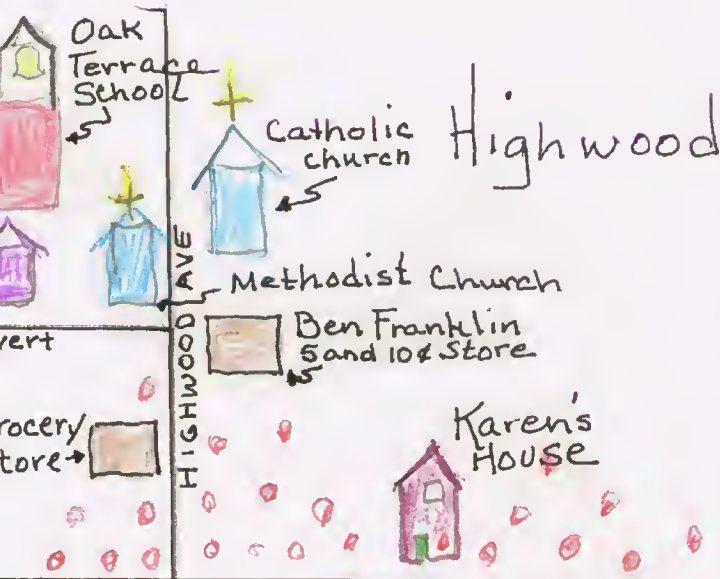 Oak
Terrace
School
Catholic
church
Highwood
HIGHWOOD AVE
Methodist Church
Ben Franklin
5 and 10¢ Store
vert
rocery
tore
Karen's
House